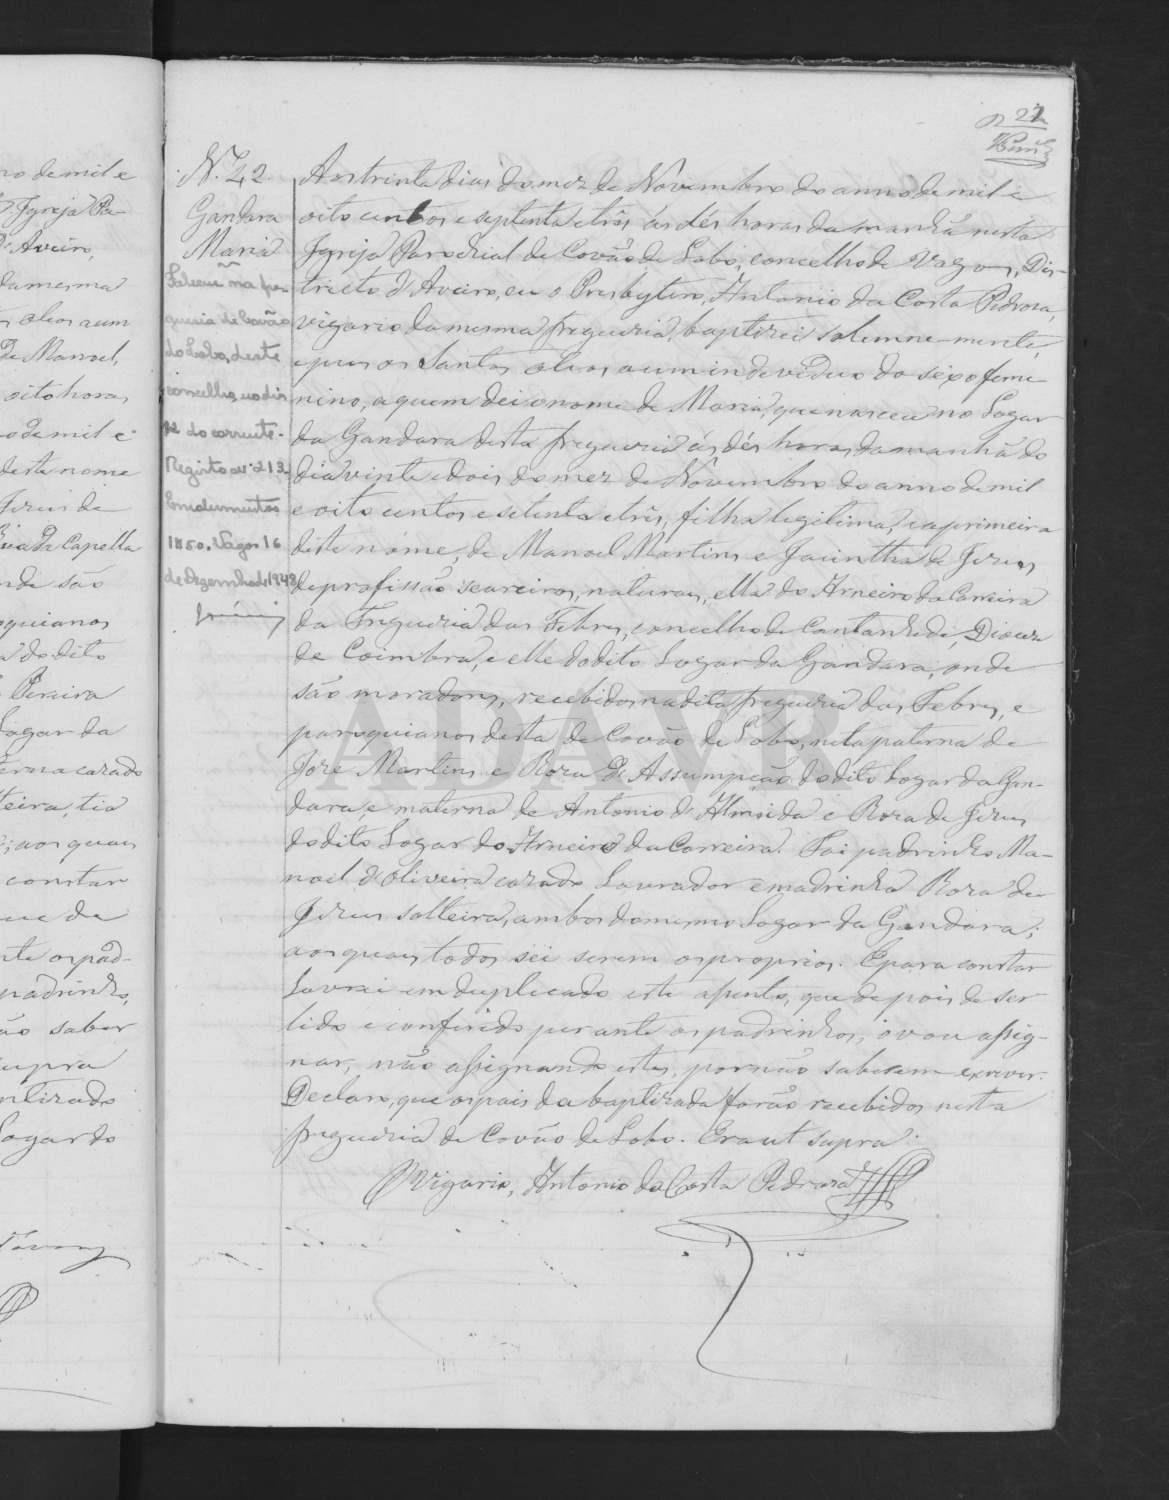 22
N.º 42
Gandara
Maria
Faleceu na fre-
guesia de Covão
do Lobo, deste
concelho, no dia
do corrente.
Registo nº 213
Emolumentos
1$50. Vagos 16
de Dezembro de 1948
Aos trinta dias do mez de Novembro do anno de mil e
oito centos e septenta e trîs ás dés horas da manhã nesta
Igreja Parochial de Covão de Lobo, concelho de Vagos, Dis-
tricto d'Aveiro, eu o Presbytero, Antonio da Costa Pedrosa,
vigario da mesma freguezia, baptizei solemne-mente,
e pus os Santos oleos a um indeviduo do sexo feme-
nino, a quem dei o nome de Maria, que nasceu no Logar
da Gandara desta freguezia ás dés horas da manhã do
dia vinte e dois do mez de Novembro do anno de mil
e oito centos e setenta e trîs, filha legitima, e a primeira
deste nome, de Manoel Martins e Jacintha de Jesus
de profissão seareiros, naturaes, ella do Arneiro da Carreira
da Freguezia das Febres, concelho de Cantanhede, Diocese
de Coimbra, e elle do dito Logar da Gandara, onde
são moradores, recebidos na dita freguezia das Febres, e
paroquianos desta de Covão de Lobo, neta paterna de
Jose Martins e Roza d'Assumpção do dito Logar da Gan-
dara, e materna de Antonio d'Almeida e Roza de Jesus
do dito Logar do Arneiro da Carreira. Foi padrinho Ma-
noel d'Oliveira cazado Lavrador e madrinha Roza de
Jesus solteira, ambos do mesmo Logar da Gandara,
aos quaes todos sei serem os proprios. E para constar
Lavrei em duplicado este assento, que depois de ser
lido e conferido perante os padrinhos, o vou assig-
nar, não assignando estes, por não saberem escrever.
Declaro, que os pais da baptizada forão recebidos nesta
freguezia de Covão de Lobo. Era ut supra.
O Vigario, Antonio da Costa Pedrosa
ADAVR
no de mil e
Igreja Pa-
d'Aveiro,
da mesma
oleos a um
de Manoel,
oito horas
o de mil e
deste nome
Jesus de
da Capella
nde são
oquianos
do dito
Pereira
Logar da
terna cazado
teira, tia
aos quaes
constar
nte os pad-
padrinhos,
ão saber
supra
ntizado
Logar do